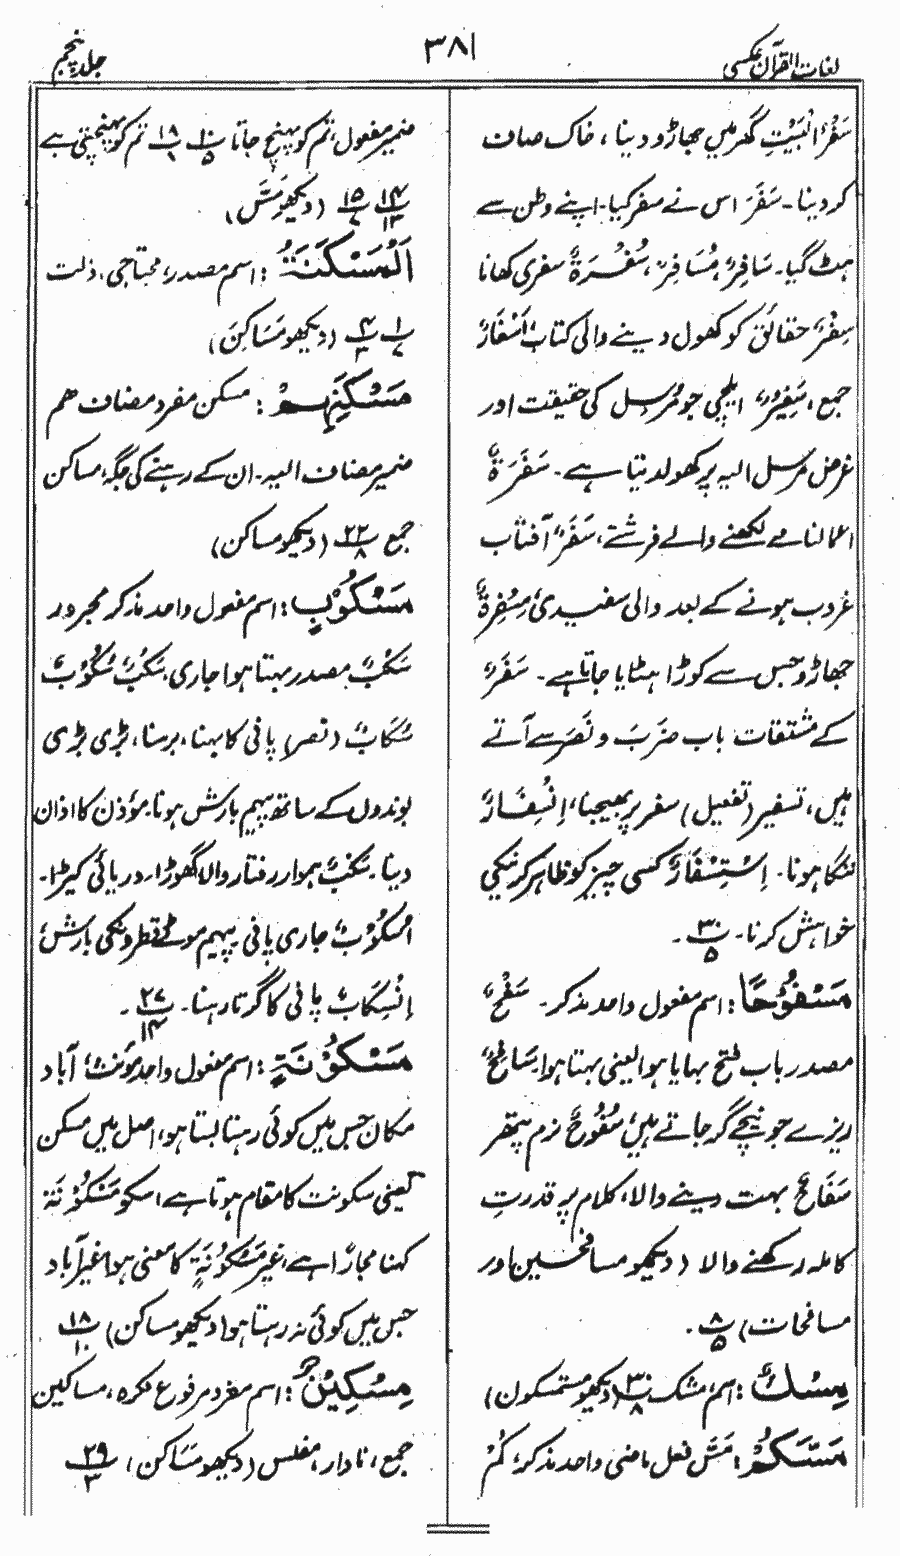 لغات القرآن عکسی
۳۸۱
جلد پنجم
سَفْرُ الْبَیْتِ گھر میں جھاڑو دینا، خاک صاف
کر دینا۔ سَفَرَ اس نے سفر کیا۔ اپنے وطن سے
ہٹ گیا۔ سَافِرٌ، مُسَافِرٌ، سُفْرَةٌ سفری کھانا
سِفْرٌ حقائق کو کھول دینے والی کتاب اَسْفَارٌ
جمع، سَفِیْرٌ، ایلچی جو مُرسِل کی حقیقت اور
غرض مرسل الیہ پر کھولدیتا ہے۔ سَفَرَةٌ
اعمالنامے لکھنے والے فرشتے، سَفَرٌ آفتاب
غروب ہونے کے بعد والی سفیدی، مِسْفِرَةٌ
جھاڑو جس سے کوڑا ہٹایا جاتا ہے۔ سَفَرٌ
کے مشتقات باب ضَرَبَ و نَصَرَ سے آتے
ہیں، تسفیر (تفعیل) سفر پر بھیجنا، اِنْسِفَارٌ
ننگا ہونا۔ اِسْتِسْفَارٌ کسی چیز کو ظاہر کرنیکی
خواہش کرنا۔ ۳/۵۔
مَسْفُوْحًا: اسم مفعول واحد مذکر۔ سَفْحٌ
مصدر باب فتح بہایا ہوا یعنی بہتا ہوا۔ سَافِحٌ
ریزے جو نیچے گر جاتے ہیں، سُفُوْحٌ نرم پتھر
سَفَّاحٌ بہت دینے والا، کلام پر قدرتِ
کاملہ رکھنے والا (دیکھو مسافحین اور
مسافحات) ۸/۵۔
مِسْكٌ: اسم، مشک ۳۰/۸ (دیکھو مستمسکون)
مَسَّكُمْ: مَسَّ فعل ماضی واحد مذکر، کُمْ
ضمیر مفعول، تم کو پہنچ جاتا ۱۰/۵ ۱۸/۸ تم کو پہنچتی ہے
۱۴/۱۳ ۱۵/۷ (دیکھو مَسَّ)
اَلْمَسْكَنَةُ: اسم مصدر، محتاجی، ذلت
۱/۷ ۴/۳ (دیکھو مَسَاکِنَ)
مَسْكَنِهِمْ: مسکن مفرد مضاف ھم
ضمیر مضاف الیہ۔ ان کے رہنے کی جگہ، مساکن
جمع ۲۲/۸ (دیکھو مساکن)
مَسْكُوْبٍ: اسم مفعول واحد مذکر مجرور
سَکْبٌ مصدر بہتا ہوا جاری، سَکْبٌ سُکُوْبٌ
سُکَابٌ (نصر) پانی کا بہنا، برسنا، بڑی بڑی
بوندوں کے ساتھ پیہم بارش ہونا۔ مؤذن کا اذان
دینا۔ سَکْبٌ ہموار رفتار والا گھوڑا۔ دریائی کیڑا۔
اُسْکُوْبٌ جاری پانی، پیہم موٹے قطرونکی بارش،
اِنْسِکَابٌ پانی کا گرتا رہنا۔ ۲۷/۱۴۔
مَسْكُوْنَةٍ: اسم مفعول واحد مؤنث، آباد
مکان جس میں کوئی رہتا بستا ہو، اصل میں مسکن
یعنی سکونت کا مقام ہوتا ہے، اسکو مَسْکُوْنَة
کہنا مجازًا ہے، غَیْرَ مَسْکُوْنَةٍ کا معنی ہوا غیر آباد
جس میں کوئی نہ رہتا ہو (دیکھو مساکن) ۱۸/۱۰
مِسْكِيْنٌ: اسم مفرد مرفوع نکرہ، مساکین
جمع، نادار، مفلس (دیکھو مَسَاکن)، ۲۹/۳